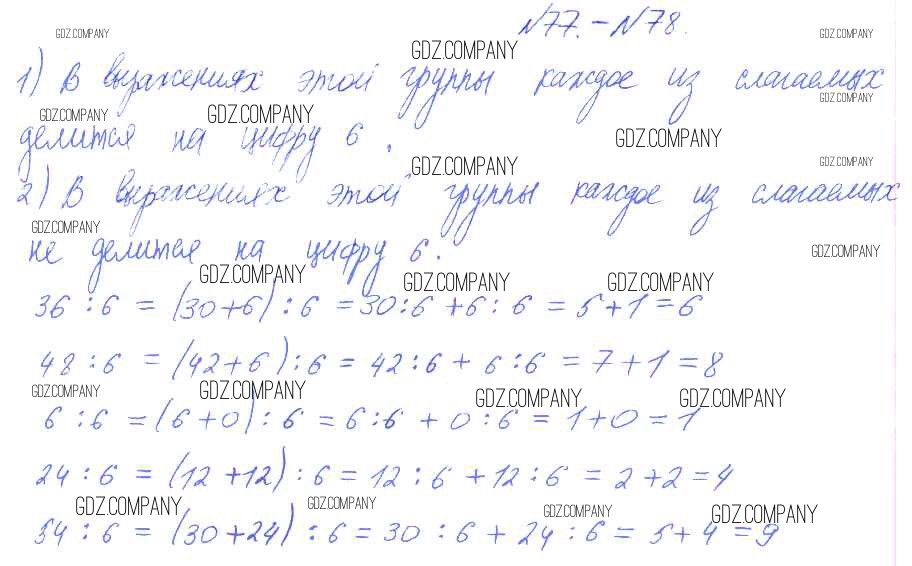 №77.-№78.
GDZ.COMPANY GDZ.COMPANY GDZ.COMPANY
1) В выражениях этой группы каждое из слагаемых
GDZ.COMPANY GDZ.COMPANY GDZ.COMPANY
делится на цифру 6.
GDZ.COMPANY
GDZ.COMPANY GDZ.COMPANY
2) В выражениях этой группы каждое из слагаемых
GDZ.COMPANY
не делится на цифру 6.
GDZ.COMPANY
GDZ.COMPANY GDZ.COMPANY GDZ.COMPANY
36 : 6 = (30+6) : 6 = 30:6 +6 : 6 = 5+1=6
48 : 6 = (42+6) : 6 = 42:6 + 6:6 = 7+1=8
GDZ.COMPANY GDZ.COMPANY GDZ.COMPANY GDZ.COMPANY
6 : 6 = (6+0) : 6 = 6:6 + 0:6 = 1+0=1
24 : 6 = (12+12) : 6 = 12 : 6 +12:6 = 2+2=4
GDZ.COMPANY GDZ.COMPANY GDZ.COMPANY GDZ.COMPANY
54 : 6 = (30+24) : 6 = 30 : 6 + 24 : 6 = 5+4=9